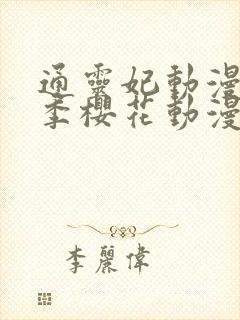 通靈妃動漫
季櫻花動漫
李麗偉